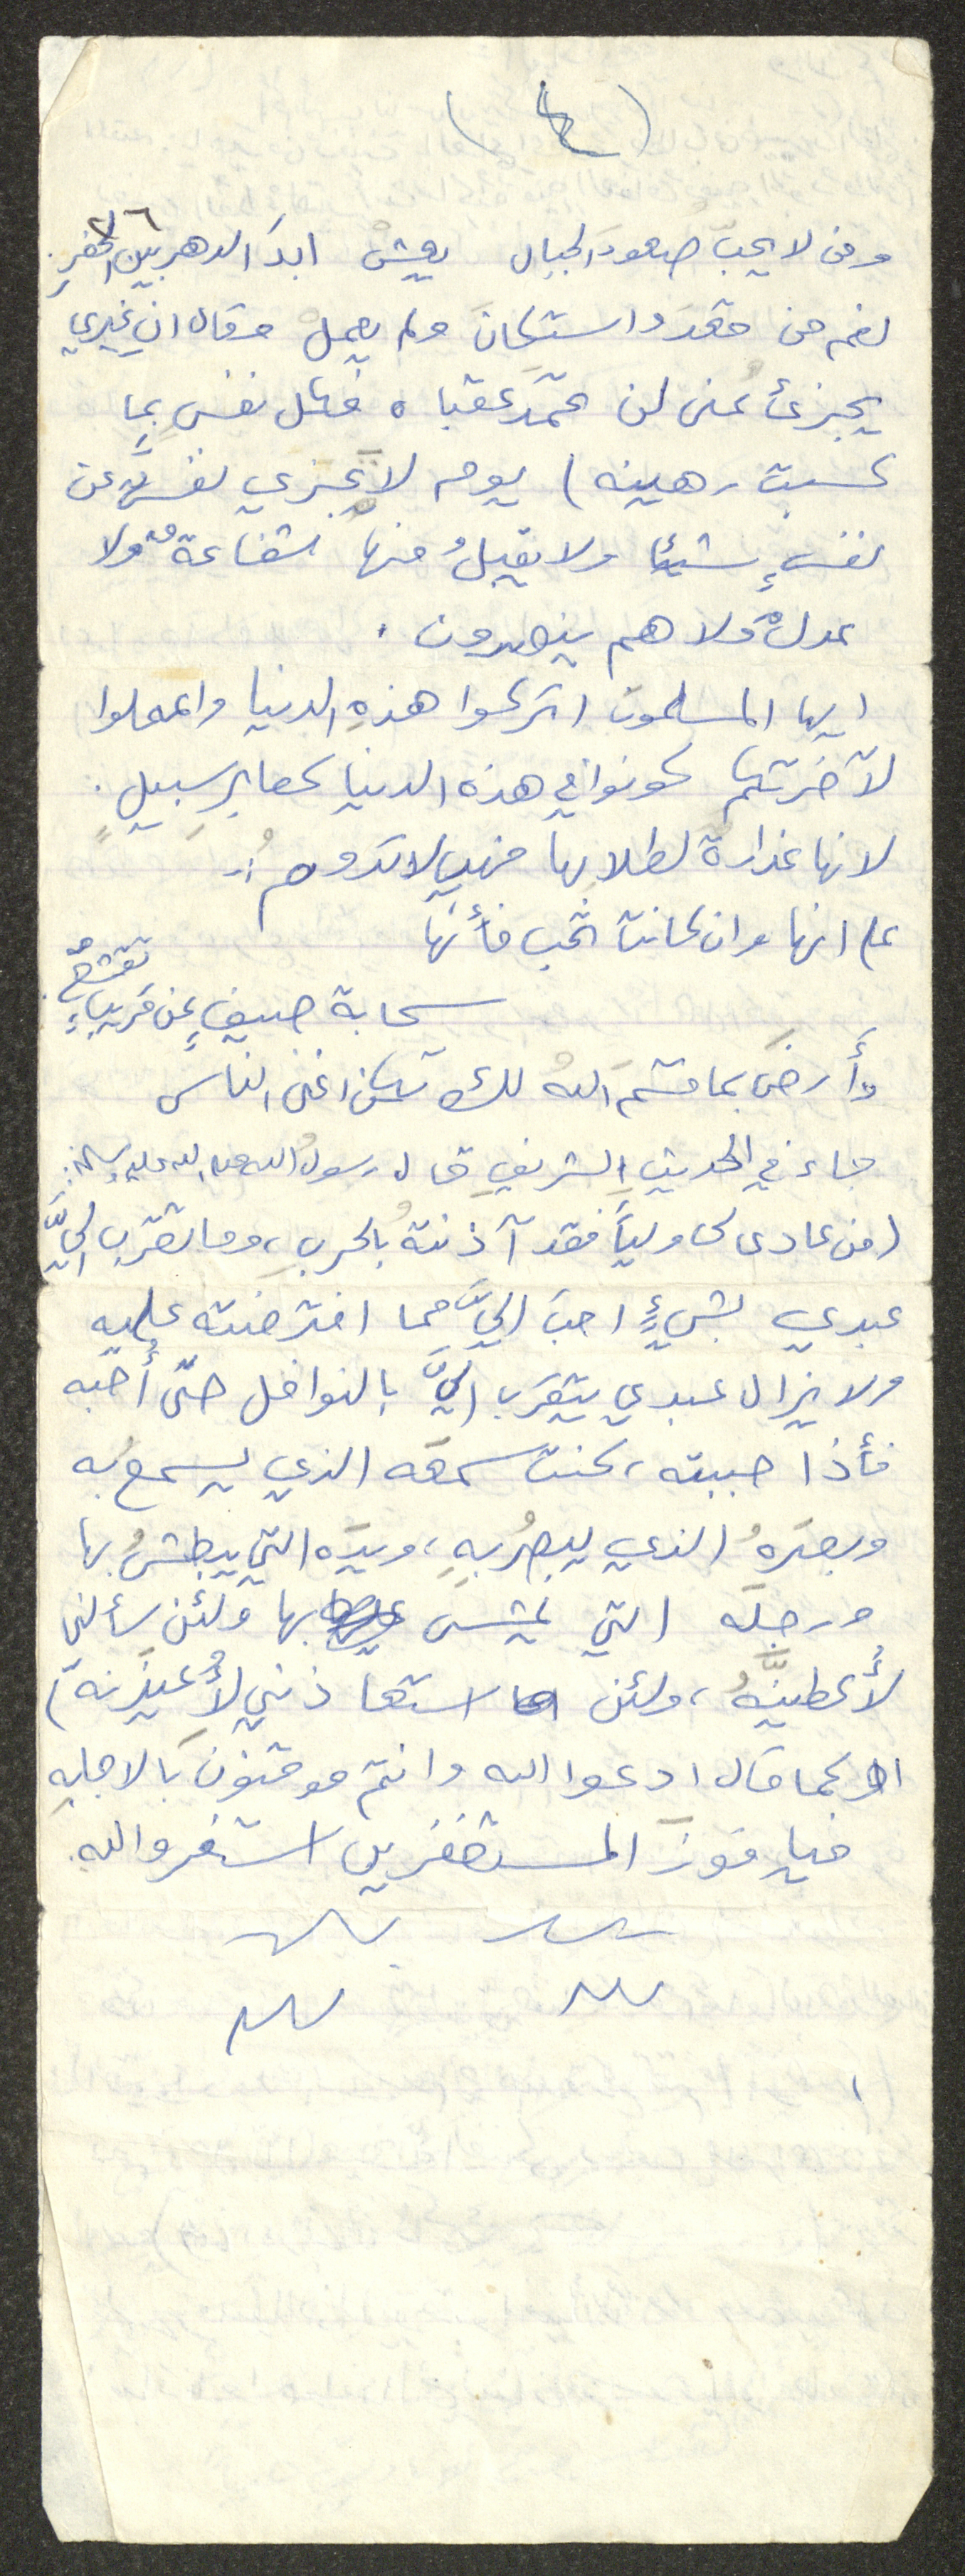 (٤)
٢٦
ومن لا يحبّ صعودَ الجبال يعيش ابدَ الدهر بين الحفرِ.
نعم من قعدَ واستكانَ ولم يعمل وقال ان غيري
يجزئُ عني لن تحمدَ عقباه فكل نفسٍ بما
كسبت رهينه) يوم لا تجزي نفسٌ عن
نفسٍ شيئا ولا يقبلُ منها شفاعةٌ ولا
عدلٌ ولا هم ينصرون .
ايها المسلمونَ اتركوا هذهِ الدنيا واعملوا
لآخرتكم كونوا في هذه الدنيا كعابرِ سبيلٍ .
لانها غدارةٌ لطلابِها فهي لا تدومُ :-
على انها وان كانت تحب فأنها
سحابة صيفٍ عن قريبٍ تقشعُ .
وأَرضَ بما قسمَ اللهُ لكَ تكن اغنى الناس
جاء في الحديثِ الشريفِ قال رسولُ الله صلى الله عليه وسلم :
(من عادى لي ولياً فقد آذنتهُ بالحربِ، وما تقرب اليَّ
عبدي بشيءٍ احبَ اليَّ مما افترضته عليه
ولا يزال عبدي يتقرب اليَّ بالنوافل حتّى أُحبه
فأذا حببته، كنت سمعَه الذي يسمعُ به
وبصرَهُ الذي يبصرُ بهِ، ويدَه التي يبطشُ بها
ورجلَه التي يمشى بها ولئن سألني
لأُعطينَّهُ، ولئن استعاذني لأُعيذنهّ)
او كما قال ادعوا الله وانتم موقنونَ بالاجابهِ
فيا فوزَ المستغفرين استغفروا اللهِ.